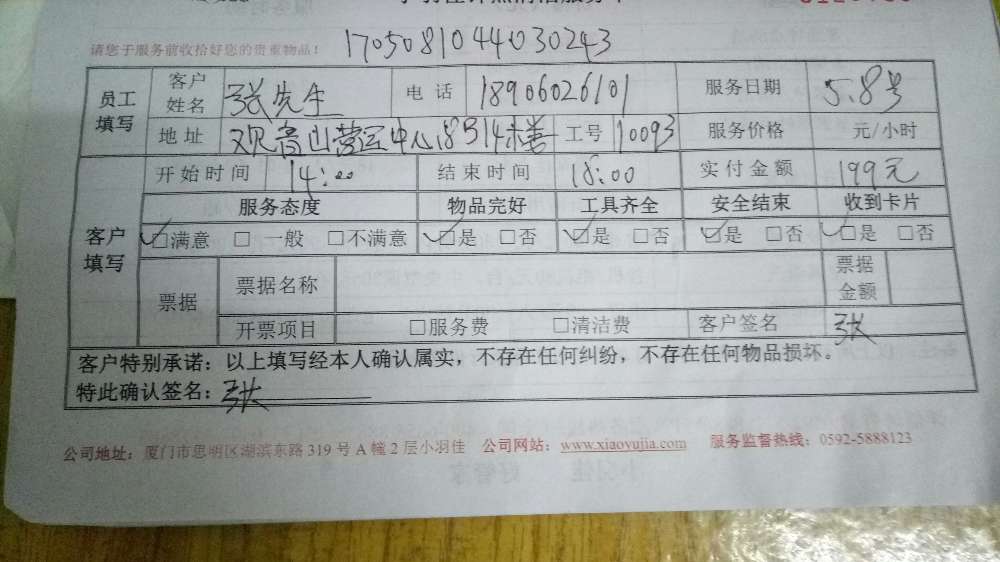 请您于服务前收拾好您的贵重物品！ 1705081044030243
员工填写 客户姓名 张先生 电话 18906026101 服务日期 5.8号
地址 观音山营运中心18号14楼 工号 10093 服务价格 元/小时
客户填写 开始时间 14:00 结束时间 18:00 实付金额 199元
服务态度 物品完好 工具齐全 安全结束 收到卡片
☑满意 □一般 □不满意 ☑是 □否 ☑是 □否 ☑是 □否 ☑是 □否
票据 票据名称 票据金额
开票项目 □服务费 □清洁费 客户签名 张
客户特别承诺：以上填写经本人确认属实，不存在任何纠纷，不存在任何物品损坏。
特此确认签名：张
公司地址：厦门市思明区湖滨东路 319 号 A 幢 2 层小羽佳 公司网站：www.xiaoyujia.com 服务监督热线：0592-5888123